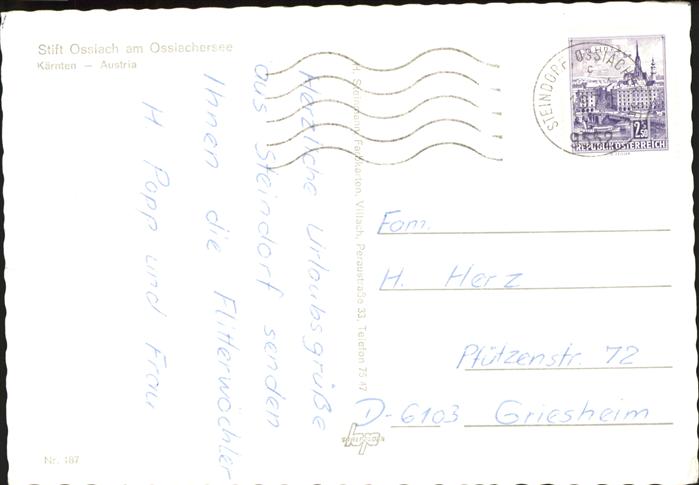 Stift Ossiach am Ossiachersee
Kärnten — Austria
Herzliche Urlaubsgrüße
aus Steindorf senden
Ihnen die Flitterwöchler
H Popp und Frau
H. Steinmann, Farbkarten, Villach, Peraustraße 33, Telefon 75 47
STEINDORF OSSIACH
9552
2.50
REPUBLIK ÖSTERREICH
Fam.
H. Herz
Pfützenstr. 72
D-6103 Griesheim
Nr. 187